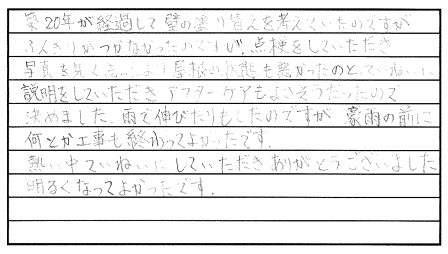 築20年が経過して壁の塗り替えを考えていたのですが
ふんぎりがつかなかったのですが、点検をしていただき
写真を見て 屋根の状態も悪かったのと、ていねいに
説明をしていただきアフターケアもよさそうだったので
決めました。雨で伸びたりもしたのですが 豪雨の前に
何とか工事も終わってよかったです。
熱い中ていねいにしていただきありがとうございました
明るくなってよかったです。